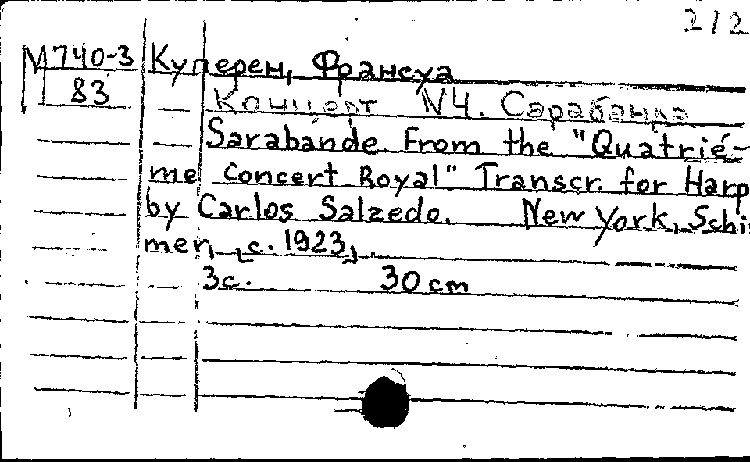 212
М740-3 Куперен, Франсуа
83 Концерт N4. Сарабанда
Sarabande. From the "Quatrié-
me Concert Royal" Transcr. for Harp
by Carlos Salzedo. New York, Schir
mer, [c. 1923]
3c. 30 cm